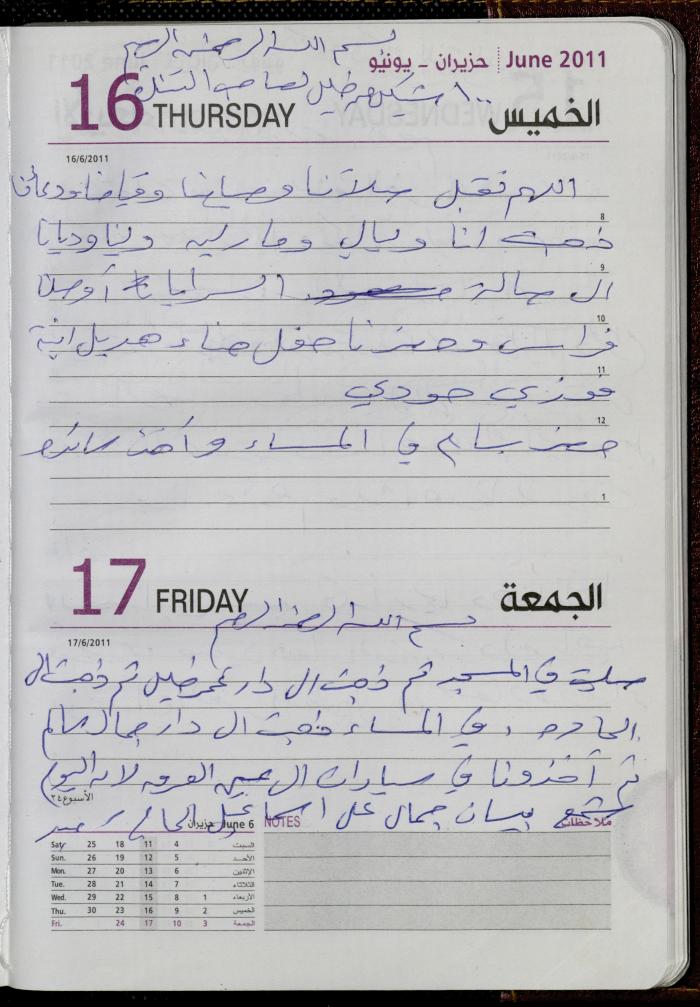 بسم الله الرحمن الرحيم
حزيران - يونيو June 2011
١٠٠ شيكل من خليل لصاحب
16 THURSDAY الخميس
16/6/2011
اللهم تقبل صلاتنا وصيامنا وقيامنا ودعائنا
8
ذهبت انا وليالي ومارليه ولنا وديانا
9
الى صالة السرايا أوصلنا
10
فراس وحضرنا حفل حناء هديل ابنة
11
فوزي حودي
12
حضر بسام في المساء وأخذ
1
17 FRIDAY الجمعة
بسم الله الرحمن الرحيم
17/6/2011
صليت في المسجد ثم ذهبت الى دار عمر خليل ثم ذهبت الى
في المساء ذهبت الى دار جمال سالم
ثم أخذونا في سيارات الى لانه اليوم
الأسبوع ٢٤
بيسان جمال على اسماعيل الحاج
حزيران June 6
NOTES ملاحظات
Sat 25 18 11 4 السبت
Sun. 26 19 12 5 الأحد
Mon. 27 20 13 6 الإثنين
Tue. 28 21 14 7 الثلاثاء
Wed. 29 22 15 8 1 الأربعاء
Thu. 30 23 16 9 2 الخميس
Fri. 24 17 10 3 الجمعة